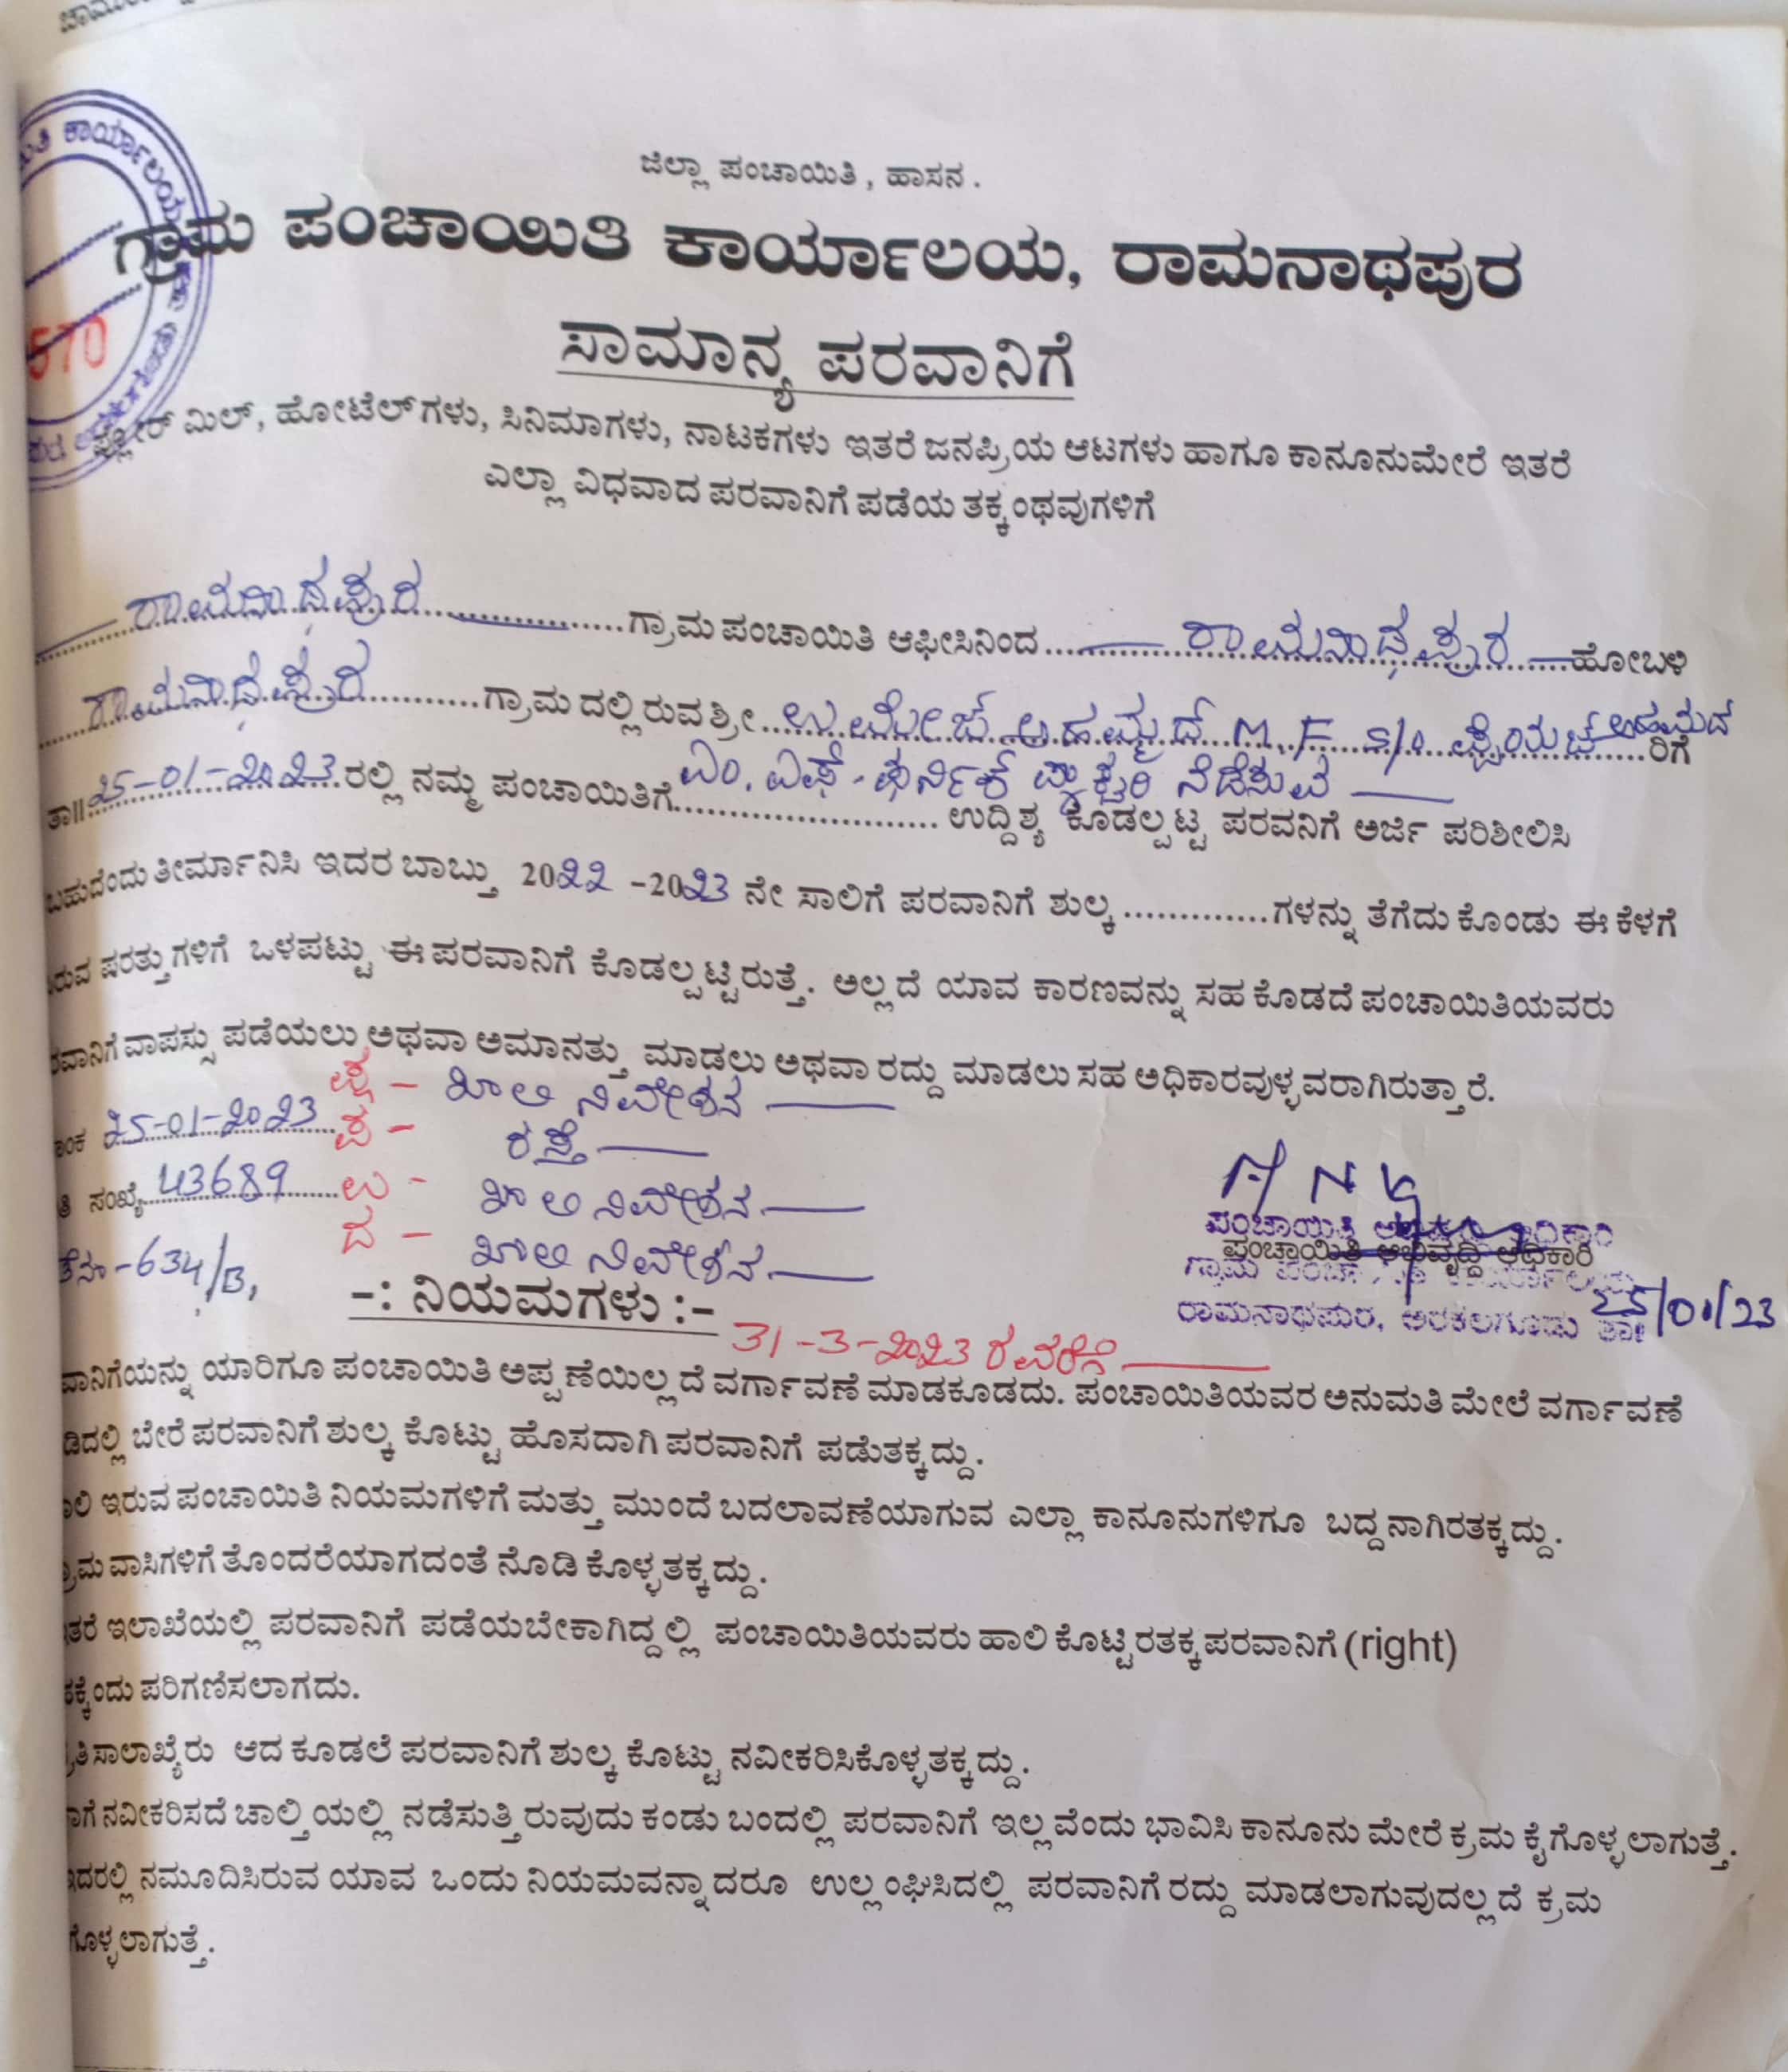 ಜಿಲ್ಲಾ ಪಂಚಾಯಿತಿ, ಹಾಸನ.
ಗ್ರಾಮ ಪಂಚಾಯಿತಿ ಕಾರ್ಯಾಲಯ, ರಾಮನಾಥಪುರ
ಸಾಮಾನ್ಯ ಪರವಾನಿಗೆ
570
ಫ್ಲೋರ್ ಮಿಲ್, ಹೋಟೆಲ್‌ಗಳು, ಸಿನಿಮಾಗಳು, ನಾಟಕಗಳು ಇತರೆ ಜನಪ್ರಿಯ ಆಟಗಳು ಹಾಗೂ ಕಾನೂನುಮೇರೆ ಇತರೆ
ಎಲ್ಲಾ ವಿಧವಾದ ಪರವಾನಿಗೆ ಪಡೆಯ ತಕ್ಕಂಥವುಗಳಿಗೆ
ರಾಮನಾಥಪುರ ಗ್ರಾಮ ಪಂಚಾಯಿತಿ ಆಫೀಸಿನಿಂದ ರಾಮನಾಥಪುರ ಹೋಬಳಿ
ರಾಮನಾಥಪುರ ಗ್ರಾಮದಲ್ಲಿರುವ ಶ್ರೀ ಅಹಮ್ಮದ್ M.F S/o ಅಹಮದ್ ರಿಗೆ
ತಾ॥ 25-01-2023 ರಲ್ಲಿ ನಮ್ಮ ಪಂಚಾಯಿತಿಗೆ ಎಂ. ಎಫ್. ನೆಡೆಸುವ ಉದ್ದಿಶ್ಯ ಕೊಡಲ್ಪಟ್ಟ ಪರವನಿಗೆ ಅರ್ಜಿ ಪರಿಶೀಲಿಸಿ
ಬಹುದೆಂದು ತೀರ್ಮಾನಿಸಿ ಇದರ ಬಾಬ್ತು 2022 -2023 ನೇ ಸಾಲಿಗೆ ಪರವಾನಿಗೆ ಶುಲ್ಕ .............ಗಳನ್ನು ತೆಗೆದುಕೊಂಡು ಈ ಕೆಳಗೆ
ರುವ ಷರತ್ತುಗಳಿಗೆ ಒಳಪಟ್ಟು ಈ ಪರವಾನಿಗೆ ಕೊಡಲ್ಪಟ್ಟಿರುತ್ತೆ. ಅಲ್ಲದೆ ಯಾವ ಕಾರಣವನ್ನು ಸಹ ಕೊಡದೆ ಪಂಚಾಯಿತಿಯವರು
ರವಾನಿಗೆ ವಾಪಸ್ಸು ಪಡೆಯಲು ಅಥವಾ ಅಮಾನತ್ತು ಮಾಡಲು ಅಥವಾ ರದ್ದು ಮಾಡಲು ಸಹ ಅಧಿಕಾರವುಳ್ಳವರಾಗಿರುತ್ತಾರೆ.
ಪೂ - ಖಾಲಿ ನಿವೇಶನ
ಾಂಕ 25-01-2023 ಪ - ರಸ್ತೆ
ತಿ ಸಂಖ್ಯೆ 43689 ಉ - ಖಾಲಿ ನಿವೇಶನ
ದ - ಖಾಲಿ ನಿವೇಶನ
-634/B,
ಪಂಚಾಯಿತಿ ಅಭಿವೃದ್ಧಿ ಅಧಿಕಾರಿ
ಪಂಚಾಯಿತಿ ಅಭಿವೃದ್ಧಿ ಅಧಿಕಾರಿ
ಗ್ರಾಮ ಪಂಚಾಯಿತಿ ಕಾರ್ಯಾಲಯ
ರಾಮನಾಥಪುರ, ಅರಕಲಗೂಡು ತಾ॥ 25/01/23
-: ನಿಯಮಗಳು :-
31-3-2023 ರವರೆಗೆ
ವಾನಿಗೆಯನ್ನು ಯಾರಿಗೂ ಪಂಚಾಯಿತಿ ಅಪ್ಪಣೆಯಿಲ್ಲದೆ ವರ್ಗಾವಣೆ ಮಾಡಕೂಡದು. ಪಂಚಾಯಿತಿಯವರ ಅನುಮತಿ ಮೇಲೆ ವರ್ಗಾವಣೆ
ಡಿದಲ್ಲಿ ಬೇರೆ ಪರವಾನಿಗೆ ಶುಲ್ಕ ಕೊಟ್ಟು ಹೊಸದಾಗಿ ಪರವಾನಿಗೆ ಪಡೆತಕ್ಕದ್ದು.
ಾಲಿ ಇರುವ ಪಂಚಾಯಿತಿ ನಿಯಮಗಳಿಗೆ ಮತ್ತು ಮುಂದೆ ಬದಲಾವಣೆಯಾಗುವ ಎಲ್ಲಾ ಕಾನೂನುಗಳಿಗೂ ಬದ್ದನಾಗಿರತಕ್ಕದ್ದು.
್ರಾಮ ವಾಸಿಗಳಿಗೆ ತೊಂದರೆಯಾಗದಂತೆ ನೊಡಿ ಕೊಳ್ಳತಕ್ಕದ್ದು.
ತರೆ ಇಲಾಖೆಯಲ್ಲಿ ಪರವಾನಿಗೆ ಪಡೆಯಬೇಕಾಗಿದ್ದಲ್ಲಿ ಪಂಚಾಯಿತಿಯವರು ಹಾಲಿ ಕೊಟ್ಟಿರತಕ್ಕ ಪರವಾನಿಗೆ (right)
ಹಕ್ಕೆಂದು ಪರಿಗಣಿಸಲಾಗದು.
್ರತಿಸಾಲಾಖೈರು ಆದ ಕೂಡಲೆ ಪರವಾನಿಗೆ ಶುಲ್ಕ ಕೊಟ್ಟು ನವೀಕರಿಸಿಕೊಳ್ಳತಕ್ಕದ್ದು.
ಾಗೆ ನವೀಕರಿಸದೆ ಚಾಲ್ತಿಯಲ್ಲಿ ನಡೆಸುತ್ತಿರುವುದು ಕಂಡು ಬಂದಲ್ಲಿ ಪರವಾನಿಗೆ ಇಲ್ಲವೆಂದು ಭಾವಿಸಿ ಕಾನೂನು ಮೇರೆ ಕ್ರಮ ಕೈಗೊಳ್ಳಲಾಗುತ್ತೆ.
ಇದರಲ್ಲಿ ನಮೂದಿಸಿರುವ ಯಾವ ಒಂದು ನಿಯಮವನ್ನಾದರೂ ಉಲ್ಲಂಘಿಸಿದಲ್ಲಿ ಪರವಾನಿಗೆ ರದ್ದು ಮಾಡಲಾಗುವುದಲ್ಲದೆ ಕ್ರಮ
ಗೊಳ್ಳಲಾಗುತ್ತೆ.